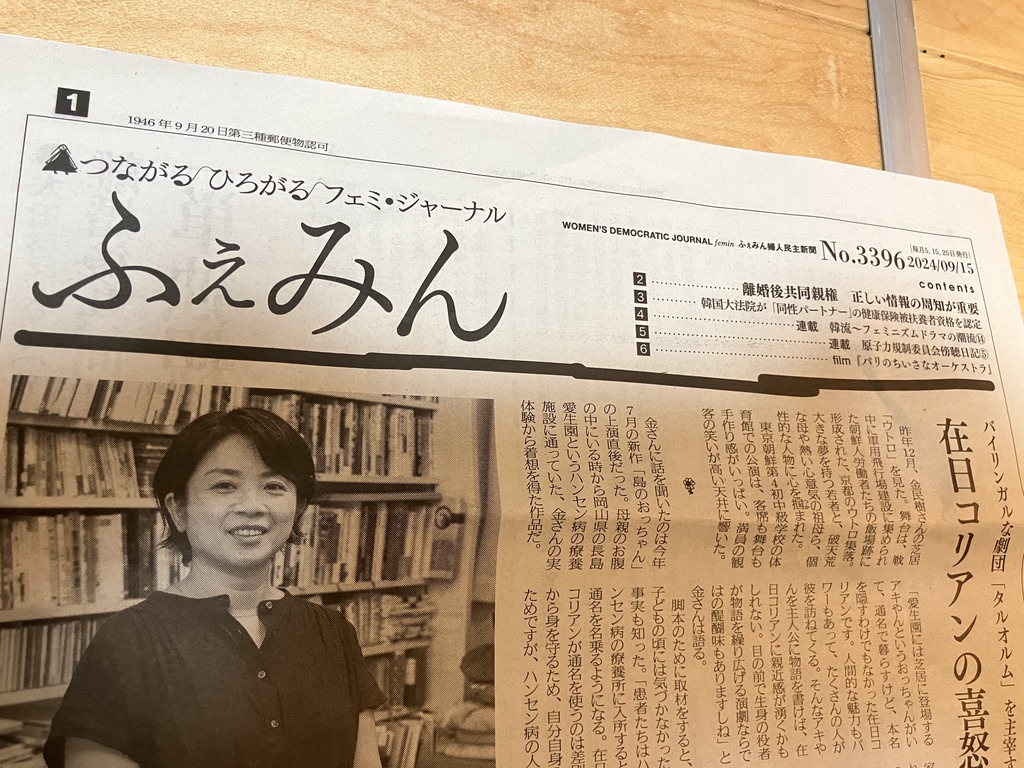 1
1946年9月20日第三種郵便物認可
つながる/ひろがる/フェミ・ジャーナル
ふぇみん
WOMEN'S DEMOCRATIC JOURNAL femin ふぇみん婦人民主新聞
No.3396
毎月5,15,25日発行
2024/09/15
contents
2 離婚後共同親権 正しい情報の周知が重要
3 韓国大法院が「同性パートナー」の健康保険被扶養者資格を認定
4 連載 韓流〜フェミニズムドラマの潮流⑭
5 連載 原子力規制委員会傍聴日記⑤
6 film『パリのちいさなオーケストラ』
バイリンガルな劇団「タルオルム」を主宰す
在日コリアンの喜怒
昨年12月、金民樹さんの芝居
「ウトロ」を見た。舞台は、戦
中に軍用飛行場建設に集められ
た朝鮮人労働者たちの飯場跡に
形成された、京都のウトロ集落。
大きな夢を持つ若者と、破天荒
な母や熱い心意気の祖母ら、個
性的な人物に心を掴まれた。
東京朝鮮第4初中級学校の体
育館での公演は、客席も舞台も
手作り感がいっぱい。満員の観
客の笑いが高い天井に響いた。
金さんに話を聞いたのは今年
7月の新作「島のおっちゃん」
の上演直後だった。母親のお腹
の中にいる時から岡山県の長島
愛生園というハンセン病の療養
施設に通っていた、金さんの実
体験から着想を得た作品だ。
「愛生園には芝居に登場する
アキやんというおっちゃんがい
て、通名で暮らすけど、本名
を隠すわけでもなかった在日コ
リアンです。人間的な魅力もパ
ワーもあって、たくさんの人が
彼を訪ねてくる。そんなアキや
んを主人公に物語を書けば、在
日コリアンに親近感が湧くかも
しれない。目の前で生身の役者
が物語を繰り広げる演劇ならで
はの醍醐味もありますしね」と
金さんは語る。
脚本のために取材をすると、
子どもの頃には気づかなかった
事実も知った。「患者たちはハ
ンセン病の療養所に入所すると
通名を名乗るようになる。在日
コリアンが通名を使うのは差別
から身を守るため、自分自身
ためですが、ハンセン病の人